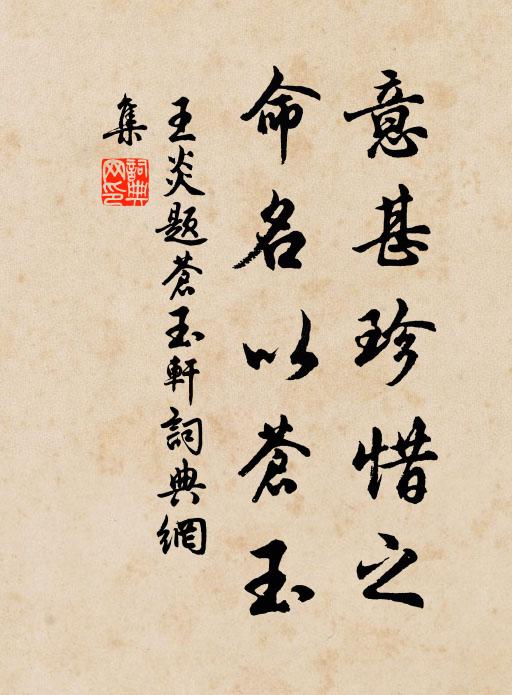 意甚珍惜之
命名以蒼玉
王炎題蒼玉軒詞典網
集
詞典網印